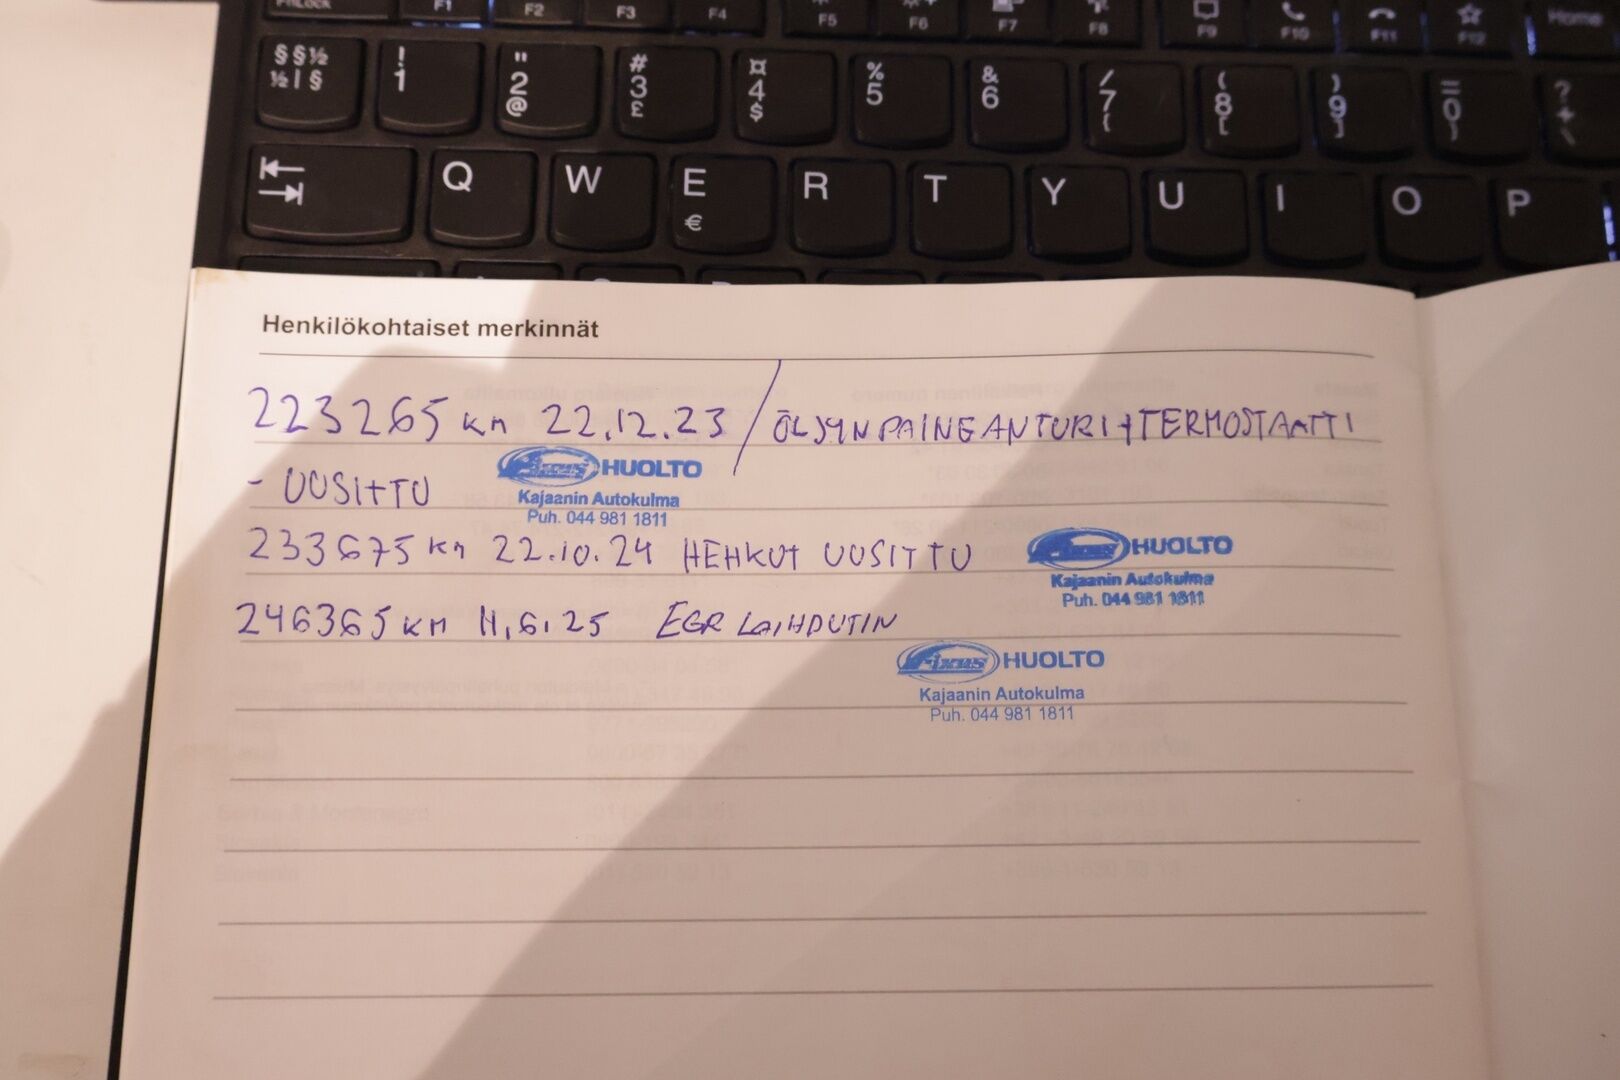 PrtLock F1 F2 F3 F4 F5 F6 F7 F8 F9 F10 F11 F12 Home
§ § ½ ! " # ¤ % & / ( ) = ?
½ | § 1 2 3 4 5 6 7 8 9 0 +
@ £ $ { [ ] } \
Q W E R T Y U I O P
€
Henkilökohtaiset merkinnät
223265 km 22.12.23 / ÖLJYNPAINEANTURI + TERMOSTAATTI
- UUSITTU
Fixus HUOLTO
Kajaanin Autokulma
Puh. 044 981 1811
233675 km 22.10.24 HEHKUT UUSITTU
Fixus HUOLTO
Kajaanin Autokulma
Puh. 044 981 1811
246365 KM 11.6.25 EGR LAIHDUTIN
Fixus HUOLTO
Kajaanin Autokulma
Puh. 044 981 1811